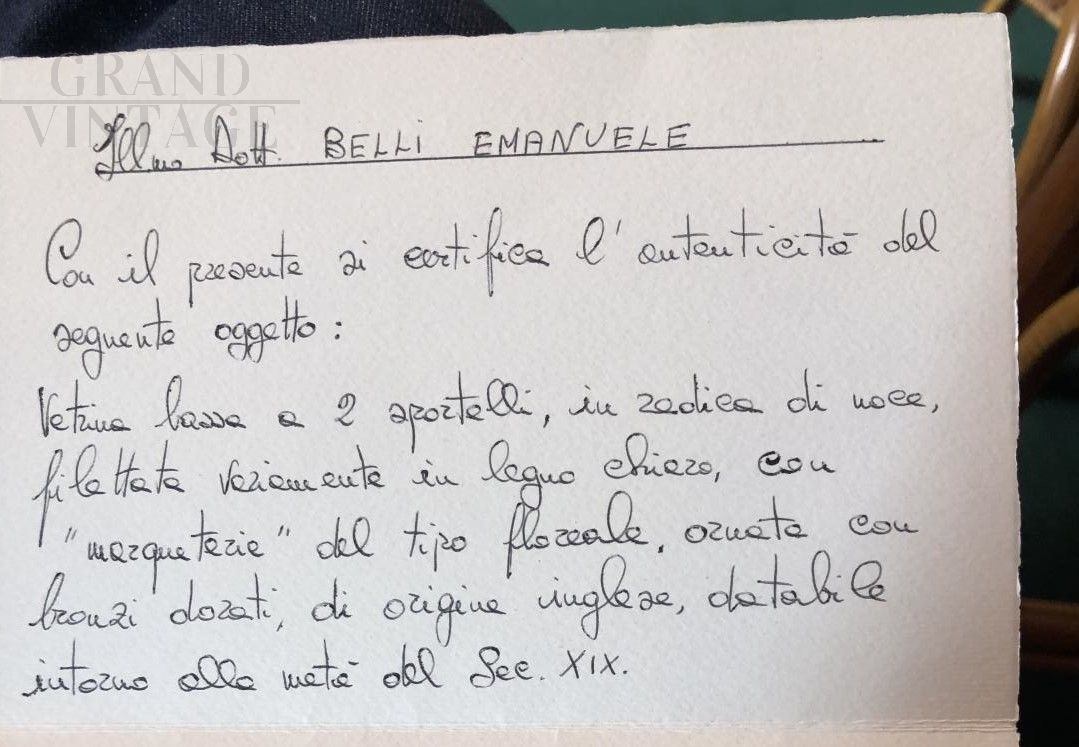 GRAND
VINTAGE
Ill.mo Dott. BELLI EMANUELE
Con il presente si certifica l'autenticità del
seguente oggetto:
Vetrina bassa a 2 sportelli, in radica di noce,
filettata variamente in legno chiaro, con
"marqueterie" del tipo floreale, ornata con
bronzi dorati, di origine inglese, databile
intorno alla metà del Sec. XIX.